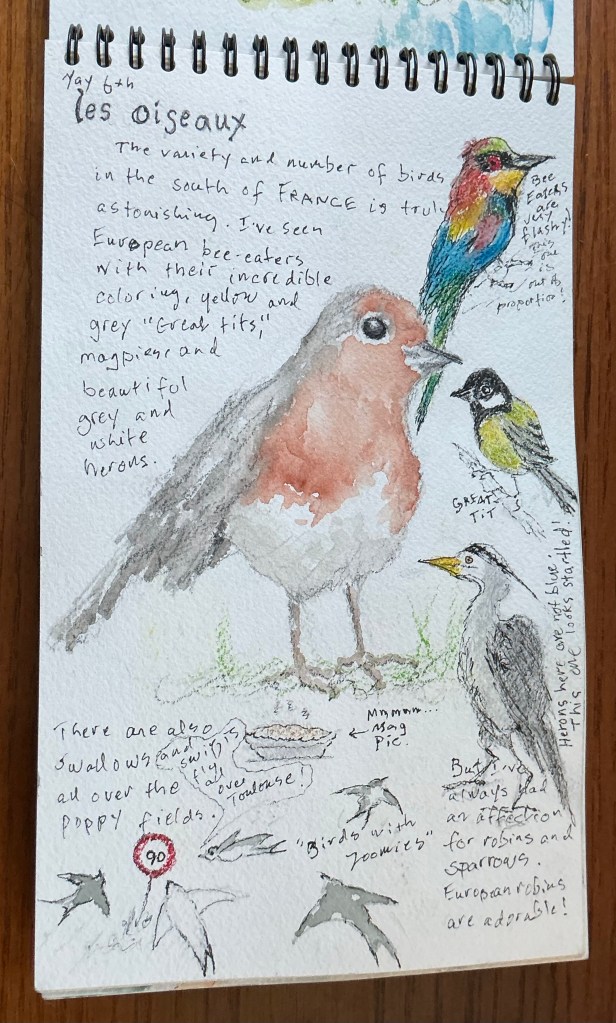 May 6th
les oiseaux
The variety and number of birds
in the south of FRANCE is truly
astonishing. I've seen
European bee-eaters
with their incredible
coloring, yellow and
grey "Great tits,"
magpies and
beautiful
grey and
white
herons.
Bee
Eaters
are
very
flashy!
This
one
is
out of
proportion!
GREAT-
TIT
Herons here are not blue.
This one looks startled!
There are also
swallows and swifts
all over the
poppy fields.
fly
all
over
Toulouse!
Mmmmm...
Mag
Pie.
"Birds with
Zoomies"
90
But I've
always had
an affection
for robins and
sparrows.
European robins
are adorable!